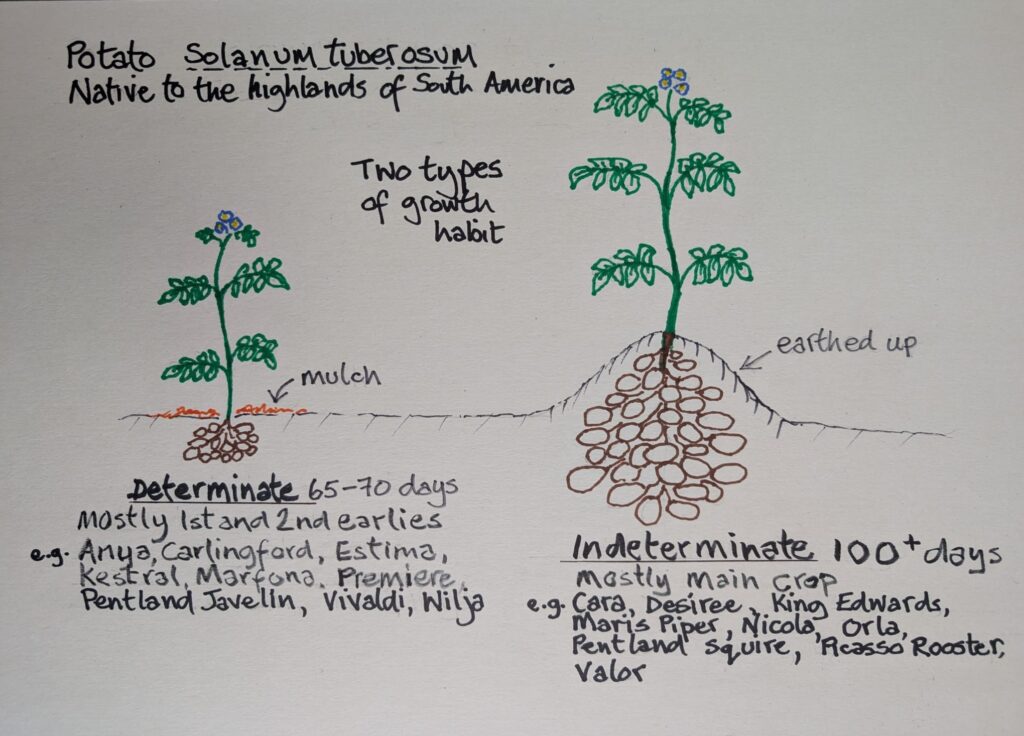 Potato Solanum tuberosum
Native to the highlands of South America
Two types
of growth
habit
mulch
earthed up
Determinate 65-70 days
Mostly 1st and 2nd earlies
e.g. Anya, Carlingford, Estima,
Kestral, Marfona, Premiere,
Pentland Javelin, Vivaldi, Wilja
Indeterminate 100+ days
mostly main crop
e.g. Cara, Desiree, King Edwards,
Maris Piper, Nicola, Orla,
Pentland Squire, Picasso Rooster,
Valor